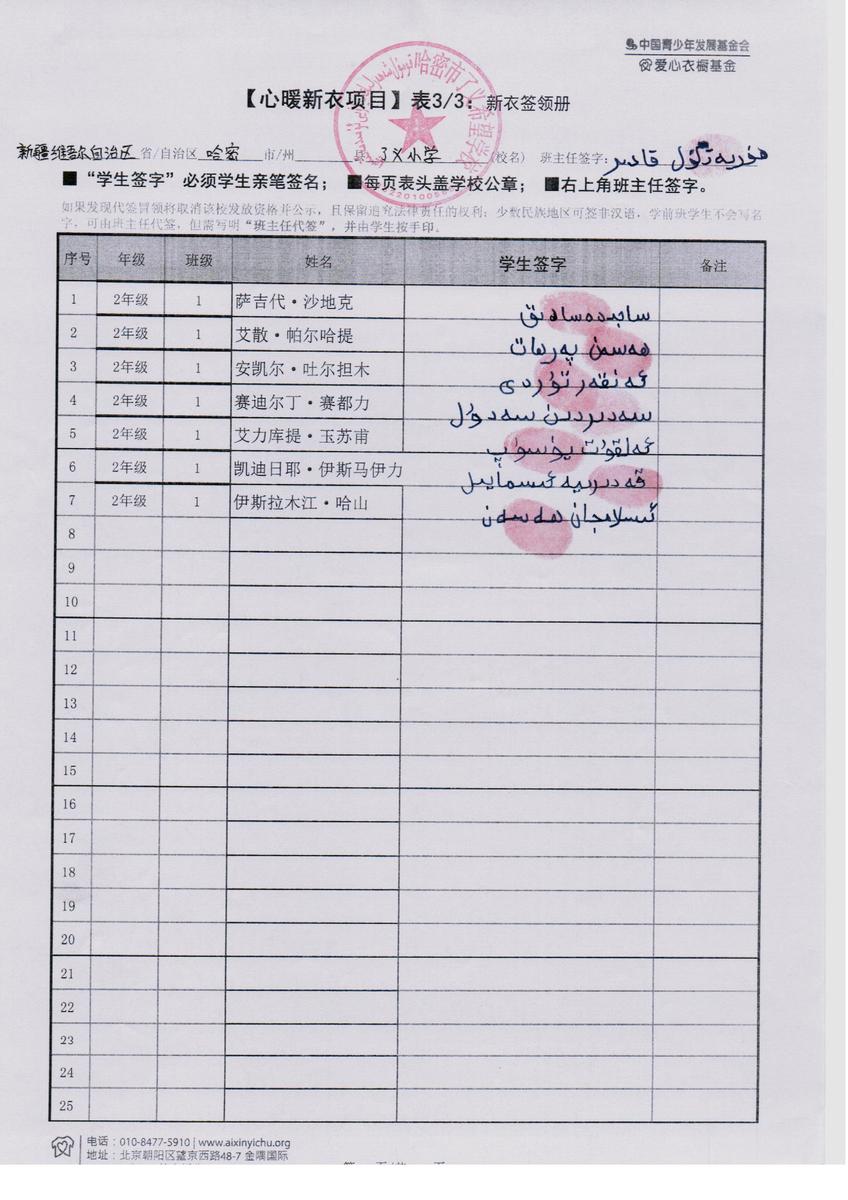 中国青少年发展基金会
爱心衣橱基金
哈密市了义希望学校
【心暖新衣项目】表3/3：新衣签领册
新疆维吾尔自治区 省/自治区 哈密 市/州 县 了义小学 (校名) 班主任签字: ھۆرىيەتگۈل قادىر
■ “学生签字”必须学生亲笔签名； ■每页表头盖学校公章； ■右上角班主任签字。
如果发现代签冒领将取消该校发放资格并公示，且保留追究法律责任的权利；少数民族地区可签非汉语，学前班学生不会写名
字，可由班主任代签，但需写明“班主任代签”，并由学生按手印。
序号 年级 班级 姓名 学生签字 备注
1 2年级 1 萨吉代·沙地克 ساجىدە سادىق
2 2年级 1 艾散·帕尔哈提 ھەسەن پەرھات
3 2年级 1 安凯尔·吐尔担木 ئەنقەر تۇردى
4 2年级 1 赛迪尔丁·赛都力 سەدىردىن سەدۇل
5 2年级 1 艾力库提·玉苏甫 ئەلقۇت يۈسۈپ
6 2年级 1 凯迪日耶·伊斯马伊力 قەدىرىيە ئىسمايىل
7 2年级 1 伊斯拉木江·哈山 ئىسلامجان ھەسەن
8
9
10
11
12
13
14
15
16
17
18
19
20
21
22
23
24
25
电话：010-8477-5910 | www.aixinyichu.org
地址：北京朝阳区望京西路48-7 金隅国际